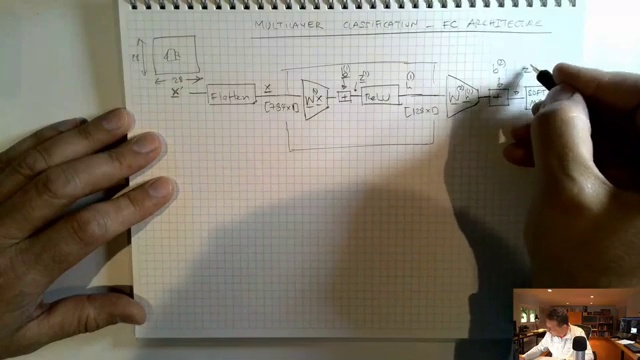 MULTILAYER CLASSIFICATION - FC ARCHITECTURE
28
28
x'
Flatten
x
[784x1]
W(1) x
b(1)
+
z(1)
ReLU
h(1)
[128x1]
W(2) h(1)
b(2)
+
SOFT